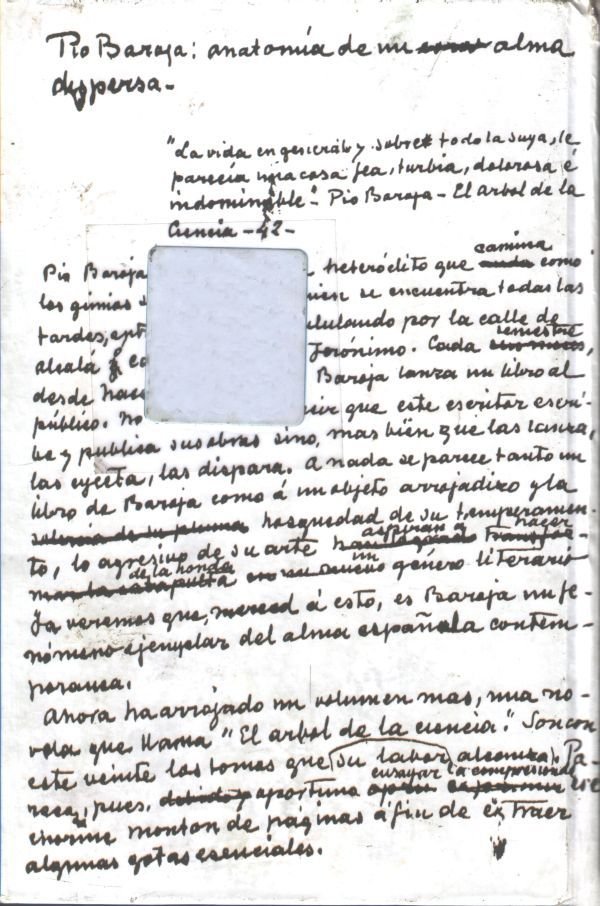 Pío Baroja: anatomía de un alma
dispersa.-
"La vida en general y sobre todo la suya, le
parecía una cosa fea, turbia, dolorosa é
indominable" - Pío Baroja - El arbol de la
Ciencia - 42 -
Pío Baroja heteróclito que camina como
los gimios quien se encuentra todas las
tardes, ululando por la calle de
Alcalá ó Jerónimo. Cada semestre,
desde hace Baroja lanza un libro al
público. No que este escritor escri-
be y publica sus obras sino, mas bien que las lanza,
las eyecta, las dispara. A nada se parece tanto un
libro de Baroja como á un objeto arrojadizo y la
hosquedad de su temperamen-
to, lo agresivo de su arte aspiran a hacer
de la honda un género literario
Ya veremos que, merced á esto, es Baroja un fe-
nómeno ejemplar del alma española contem-
poranea.
Ahora ha arrojado un volumen mas, una no-
vela que llama "El arbol de la ciencia". Son con
este veinte los tomos que su labor alcanza. Pa-
rece, pues, oportuna ensayar la compresión de ese
enorme monton de páginas á fin de extraer
algunas gotas esenciales.